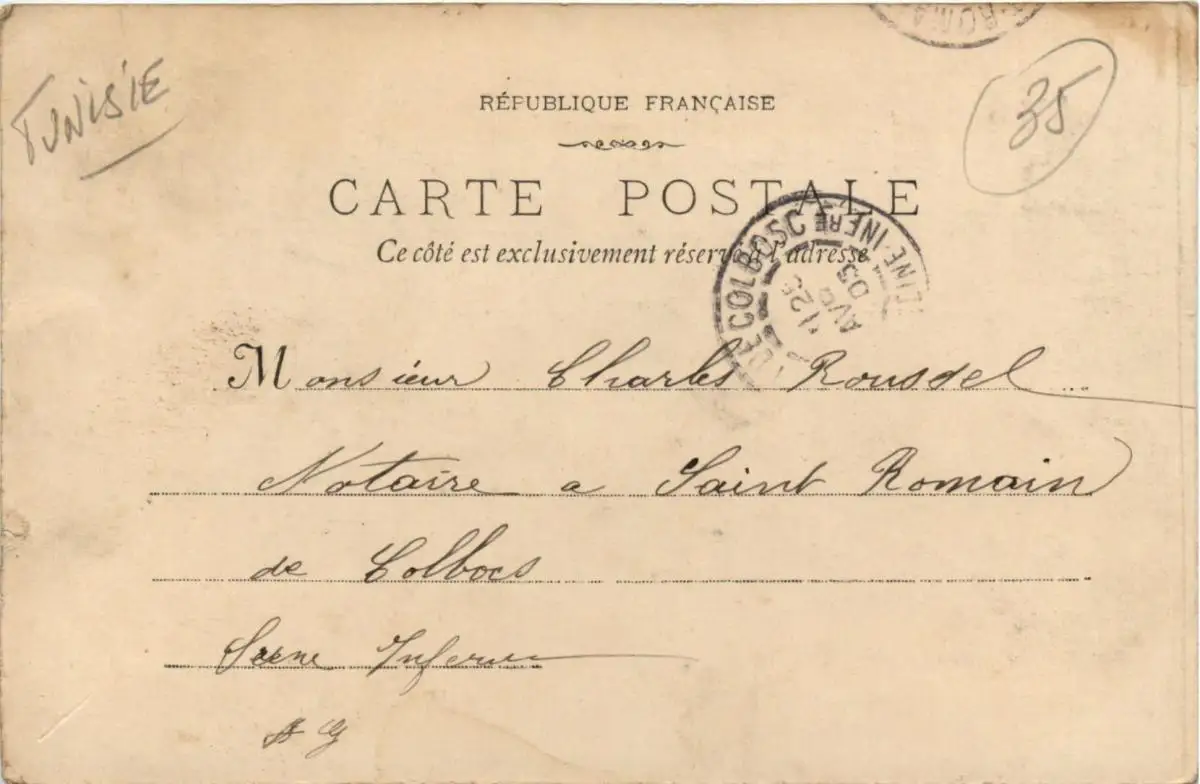 TUNISIE
35
RÉPUBLIQUE FRANÇAISE
CARTE POSTALE
Ce côté est exclusivement réservé à l'adresse
DE COLBOSC
INFRE
AVR
03
Monsieur Charles Roussel
Notaire a Saint Romain
de Colbocs
Seine Inferie